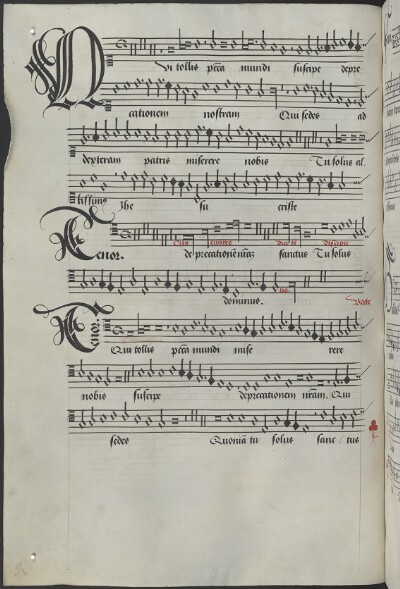 Qui tollis pcc̄a mundi suscipe depre
cationem nostram Qui sedes ad
dexteram patris miserere nobis Tu solus al
tissimus Jhe su criste
Tenor.
euntes
deprecationē nr̄aʒ sanctus Tu solus
dominus.
Tenor.
Qui tollis pcc̄a mundi mise rere
nobis suscipe deprecationem nr̄am. Qui
sedes Quoniā tu solus sanc tus